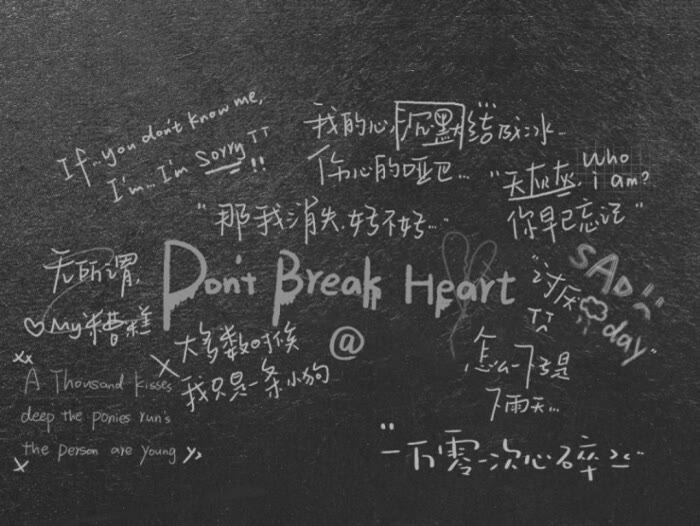 If...you don't know me,
I'm...I'm sorry TT !!
我的心沉默结成冰...
伤心的哑巴...
"天灰灰,
who
i am?
你早已忘记"
"那我消失,好不好..."
无所谓,
My糟糕
Don't Break Heart
SAD
"讨厌
TT
day"
大多数时候
我只是一条小狗
@
怎么下的是
下雨天...
A Thousand kisses
deep the ponies run's
the person are young
"一百零一次心碎